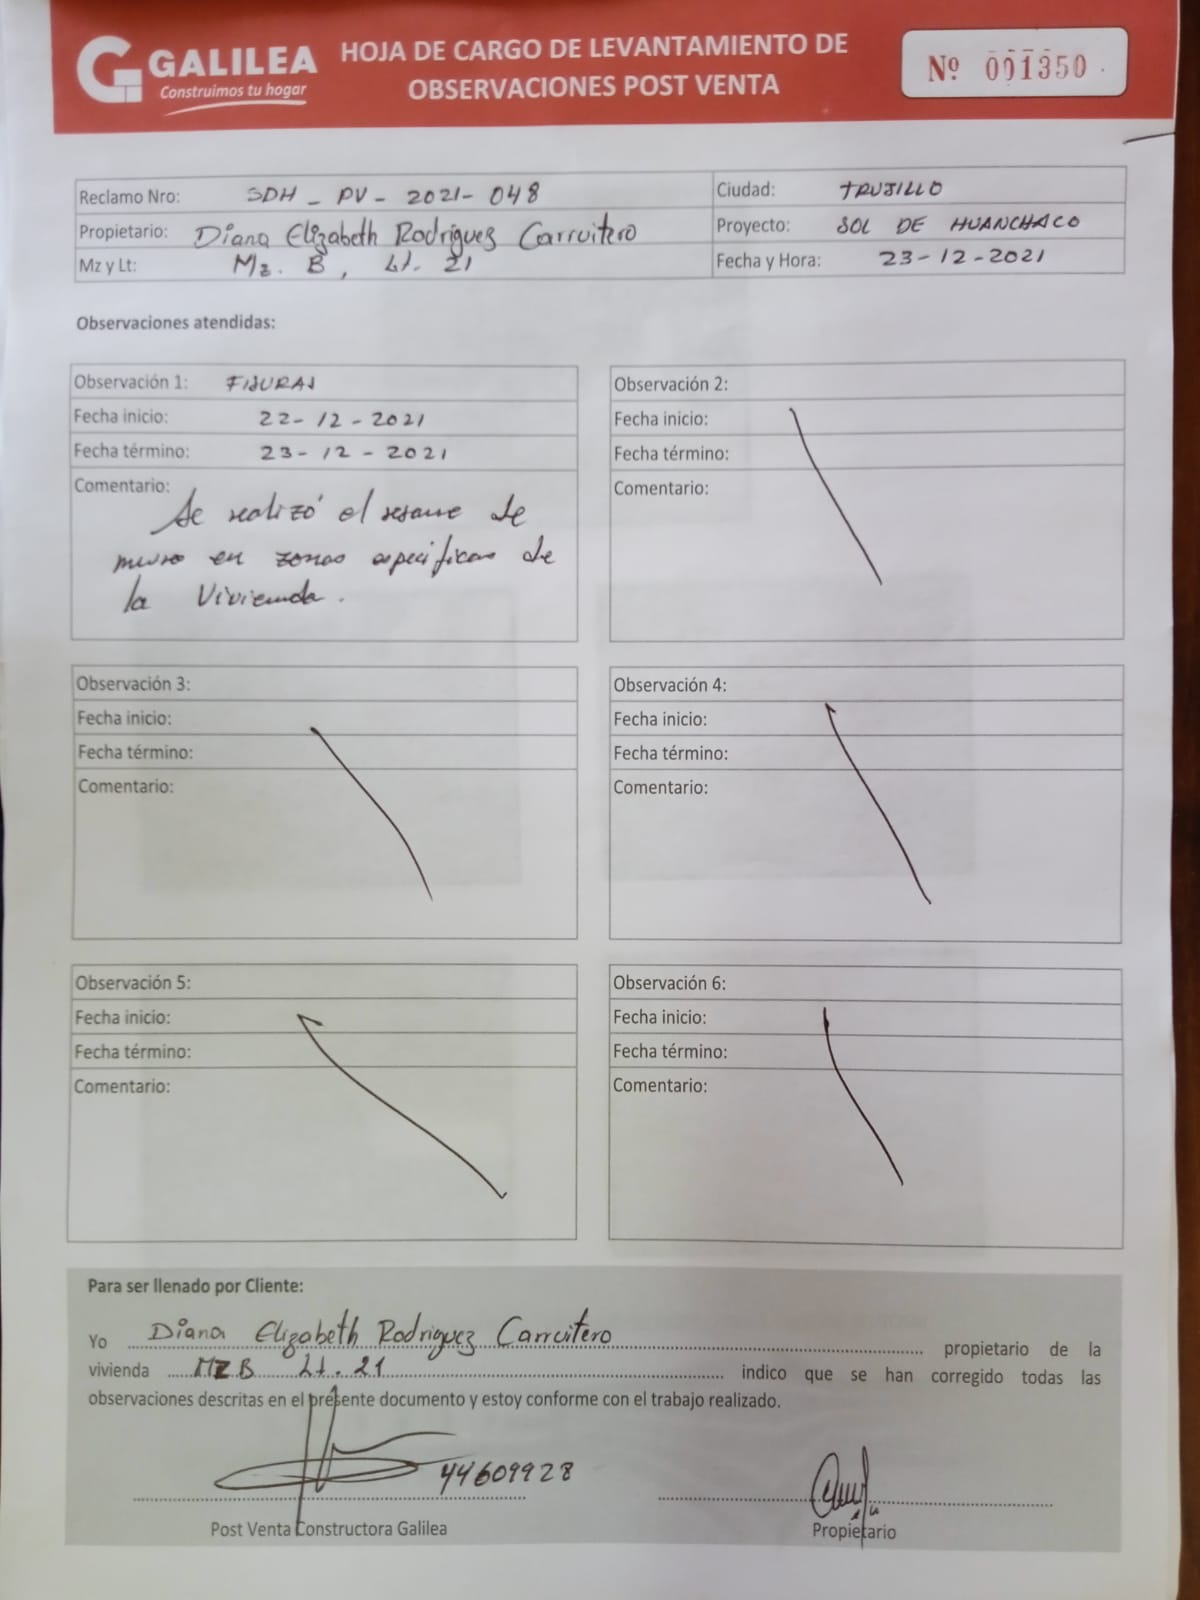 GALILEA
Construimos tu hogar
HOJA DE CARGO DE LEVANTAMIENTO DE
OBSERVACIONES POST VENTA
Nº 001350
Reclamo Nro: SDH - PV - 2021 - 048
Ciudad: TRUJILLO
Propietario: Diana Elizabeth Rodriguez Carruitero
Proyecto: SOL DE HUANCHACO
Mz y Lt: Mz. B, Lt. 21
Fecha y Hora: 23-12-2021
Observaciones atendidas:
Observación 1: FISURAS
Fecha inicio: 22-12-2021
Fecha término: 23-12-2021
Comentario:
Se realizó el resane de
muro en zonas especificas de
la Vivienda.
Observación 2:
Fecha inicio:
Fecha término:
Comentario:
Observación 3:
Fecha inicio:
Fecha término:
Comentario:
Observación 4:
Fecha inicio:
Fecha término:
Comentario:
Observación 5:
Fecha inicio:
Fecha término:
Comentario:
Observación 6:
Fecha inicio:
Fecha término:
Comentario:
Para ser llenado por Cliente:
Yo Diana Elizabeth Rodriguez Carruitero propietario de la
vivienda Mz B Lt. 21 indico que se han corregido todas las
observaciones descritas en el présente documento y estoy conforme con el trabajo realizado.
44609928
Post Venta Constructora Galilea
Propietario